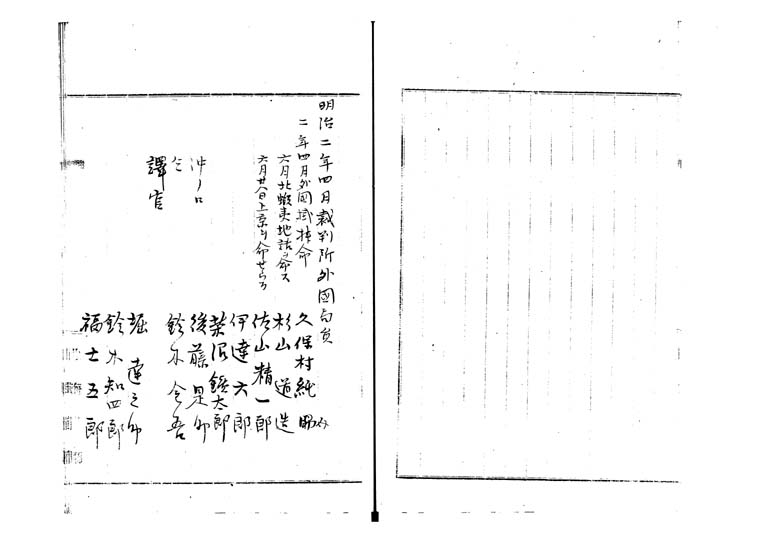 明治二年四月裁判所外國局員
二年四月外國掛拝命
久保村純
六月北蝦夷地詰ヲ命ス
杉山道造
六月廿八日上京ヲ命セラル
佐山精一郎
伊達六郎
菜沼鎮太郎
後藤是
沖ノ口
鈴木金吾
仝
譯官
堀達之
鈴木知四郎
福士五郎